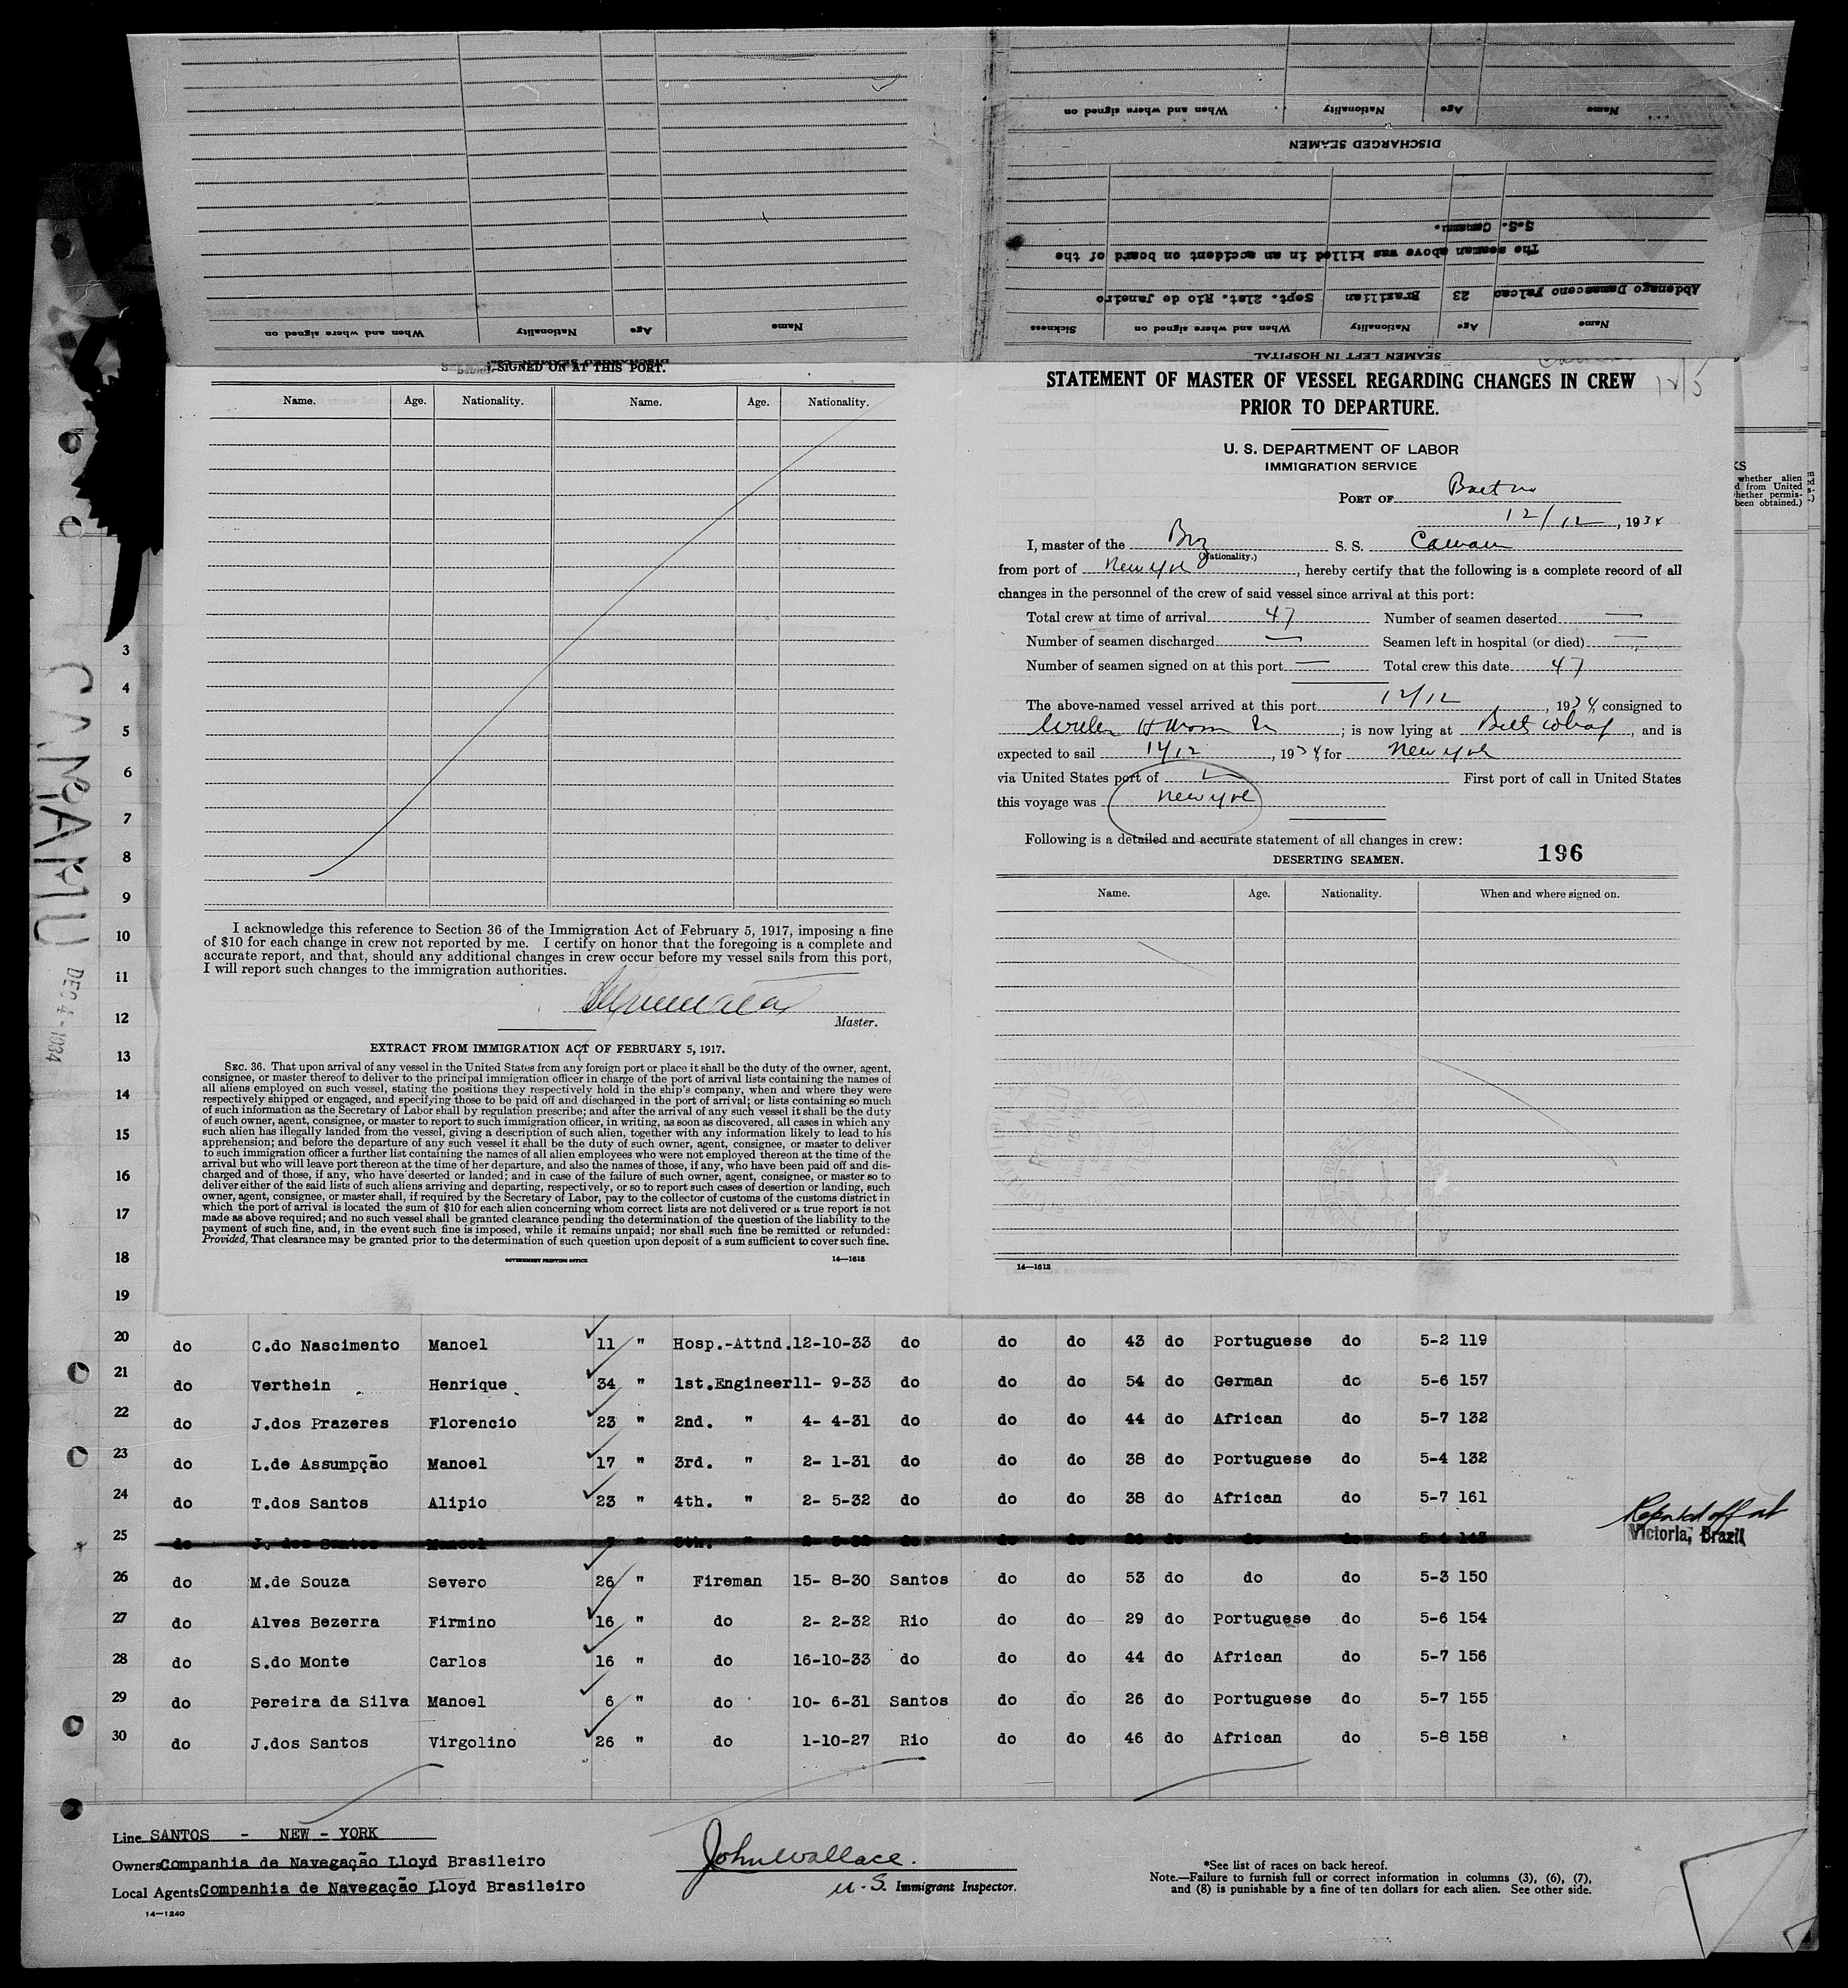 Name Age Nationality When and where signed on
DISCHARGED SEAMEN
S.S. Camamu.
The seaman above was killed in an accident on board of the
Abdenago Damasceno Falcao 23 Brazilian Sept. 21st. Rio de Janeiro
Name Age Nationality When and where signed on Sickness
SEAMEN LEFT IN HOSPITAL
Name Age Nationality When and where signed on
DISCHARGED SEAMEN
SIGNED ON AT THIS PORT.
Name. Age. Nationality. Name. Age. Nationality.
I acknowledge this reference to Section 36 of the Immigration Act of February 5, 1917, imposing a fine
of $10 for each change in crew not reported by me. I certify on honor that the foregoing is a complete and
accurate report, and that, should any additional changes in crew occur before my vessel sails from this port,
I will report such changes to the immigration authorities.
Master.
EXTRACT FROM IMMIGRATION ACT OF FEBRUARY 5, 1917.
SEC. 36. That upon arrival of any vessel in the United States from any foreign port or place it shall be the duty of the owner, agent,
consignee, or master thereof to deliver to the principal immigration officer in charge of the port of arrival lists containing the names of
all aliens employed on such vessel, stating the positions they respectively hold in the ship's company, when and where they were
respectively shipped or engaged, and specifying those to be paid off and discharged in the port of arrival; or lists containing so much
of such information as the Secretary of Labor shall by regulation prescribe; and after the arrival of any such vessel it shall be the duty
of such owner, agent, consignee, or master to report to such immigration officer, in writing, as soon as discovered, all cases in which any
such alien has illegally landed from the vessel, giving a description of such alien, together with any information likely to lead to his
apprehension; and before the departure of any such vessel it shall be the duty of such owner, agent, consignee, or master to deliver
to such immigration officer a further list containing the names of all alien employees who were not employed thereon at the time of the
arrival but who will leave port thereon at the time of her departure, and also the names of those, if any, who have been paid off and dis-
charged and of those, if any, who have deserted or landed; and in case of the failure of such owner, agent, consignee, or master so to
deliver either of the said lists of such aliens arriving and departing, respectively, or so to report such cases of desertion or landing, such
owner, agent, consignee, or master shall, if required by the Secretary of Labor, pay to the collector of customs of the customs district in
which the port of arrival is located the sum of $10 for each alien concerning whom correct lists are not delivered or a true report is not
made as above required; and no such vessel shall be granted clearance pending the determination of the question of the liability to the
payment of such fine, and, in the event such fine is imposed, while it remains unpaid; nor shall such fine be remitted or refunded:
Provided, That clearance may be granted prior to the determination of such question upon deposit of a sum sufficient to cover such fine.
GOVERNMENT PRINTING OFFICE 14—1613
STATEMENT OF MASTER OF VESSEL REGARDING CHANGES IN CREW
PRIOR TO DEPARTURE.
12/5
U. S. DEPARTMENT OF LABOR
IMMIGRATION SERVICE
PORT OF
12/12, 1934
I, master of the Brz S. S.
(Nationality.)
from port of New York, hereby certify that the following is a complete record of all
changes in the personnel of the crew of said vessel since arrival at this port:
Total crew at time of arrival 47 Number of seamen deserted —
Number of seamen discharged — Seamen left in hospital (or died) —
Number of seamen signed on at this port — Total crew this date 47
The above-named vessel arrived at this port 12/12, 1934, consigned to
; is now lying at, and is
expected to sail, 1934, for New York
via United States port of — First port of call in United States
this voyage was New York
Following is a detailed and accurate statement of all changes in crew:
DESERTING SEAMEN.
196
Name. Age. Nationality. When and where signed on.
14—1613
KS
whether alien
d from United
hether permis-
been obtained.)
CAMAMU
DEC 4 - 1934
3
4
5
6
7
8
9
10
11
12
13
14
15
16
17
18
19
20 do C.do Nascimento Manoel 11 " Hosp.-Attnd. 12-10-33 do do do 43 do Portuguese do 5-2 119
21 do Verthein Henrique 34 " 1st.Engineer 11- 9-33 do do do 54 do German do 5-6 157
22 do J.dos Prazeres Florencio 23 " 2nd. " 4- 4-31 do do do 44 do African do 5-7 132
23 do L.de Assumpção Manoel 17 " 3rd. " 2- 1-31 do do do 38 do Portuguese do 5-4 132
24 do T.dos Santos Alipio 23 " 4th. " 2- 5-32 do do do 38 do African do 5-7 161
25 do J. dos Santos Manoel 7 " 5th. " do do do do do do
Reported off at
Victoria, Brazil
26 do M.de Souza Severo 26 " Fireman 15- 8-30 Santos do do 53 do do do 5-3 150
27 do Alves Bezerra Firmino 16 " do 2- 2-32 Rio do do 29 do Portuguese do 5-6 154
28 do S.do Monte Carlos 16 " do 16-10-33 do do do 44 do African do 5-7 156
29 do Pereira da Silva Manoel 6 " do 10- 6-31 Santos do do 26 do Portuguese do 5-7 155
30 do J.dos Santos Virgolino 26 " do 1-10-27 Rio do do 46 do African do 5-8 158
Line SANTOS - NEW - YORK
Owners Companhia de Navegação Lloyd Brasileiro
Local Agents Companhia de Navegação Lloyd Brasileiro
14—1240
John Wallace.
U. S. Immigrant Inspector.
*See list of races on back hereof.
Note.—Failure to furnish full or correct information in columns (3), (6), (7),
and (8) is punishable by a fine of ten dollars for each alien. See other side.